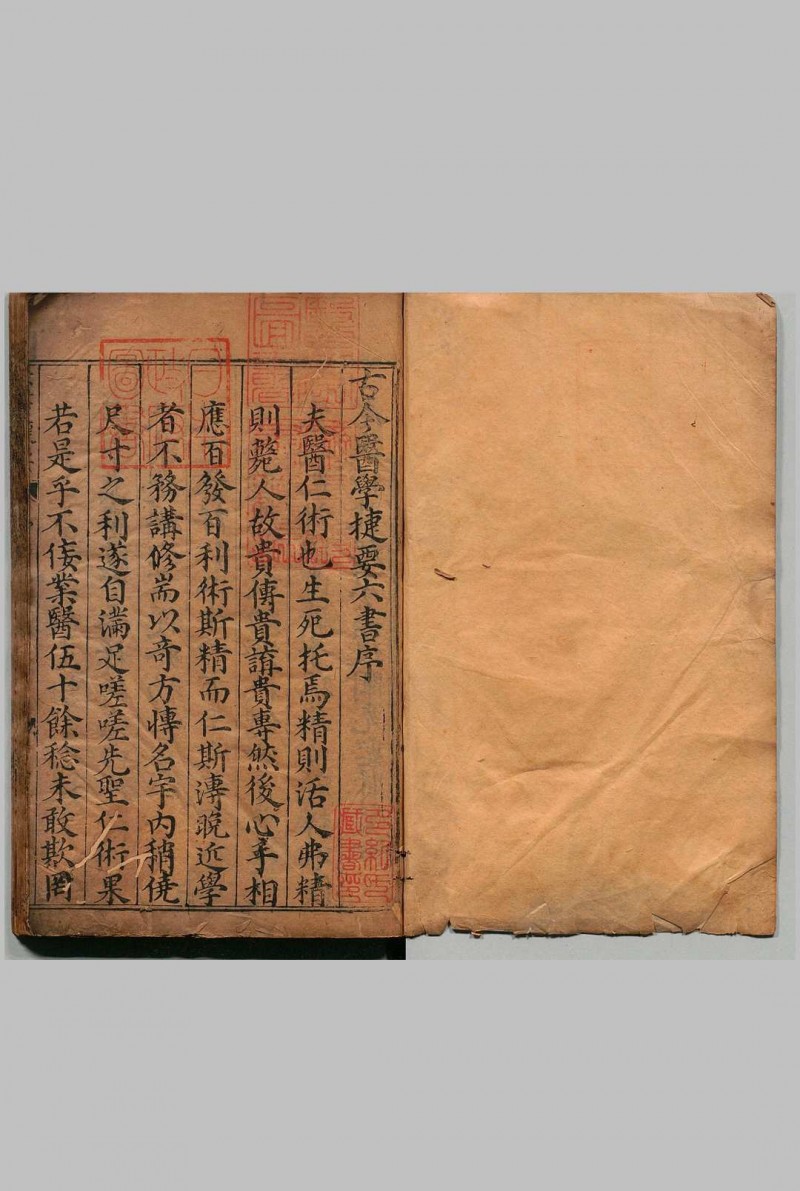 古今醫學捷要六書序
夫醫仁術也生死托焉精則活人弗精
則斃人故貴傳貴諳貴專然後心手相
應百發百利術斯精而仁斯溥晚近學
者不務講修耑以奇方愽名宇内稍僥
尺寸之利遂自滿足嗟嗟先聖仁術果
若是乎不佞業醫伍十餘稔未敢欺罔